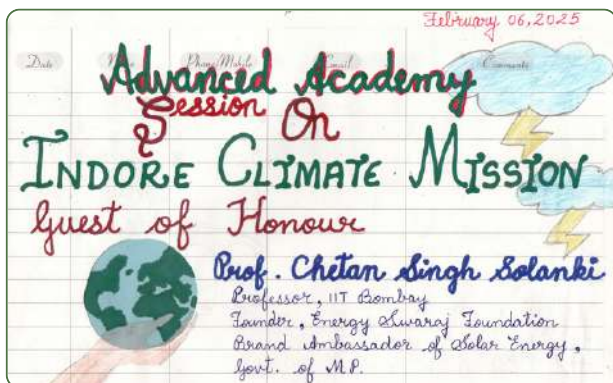 February 06, 2025
Date Name Phone/Mobile Email Comments
Advanced Academy
Session On
INDORE CLIMATE MISSION
Guest of Honour
Prof. Chetan Singh Solanki
Professor, IIT Bombay
Founder, Energy Swaraj Foundation
Brand Ambassador of Solar Energy,
Govt. of M.P.